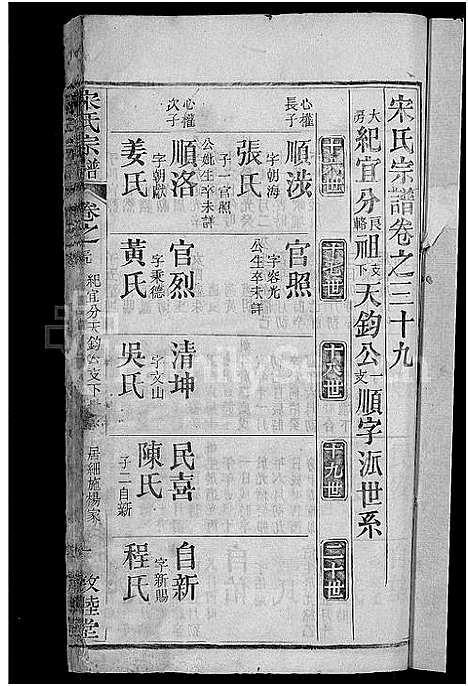 宋氏宗譜卷之三十九
大房紀宜分長略祖支下天鈞公一支順字派世系
十六世
十七世
十八世
十九世
二十世
心權長子
順涉
字朝海
張氏
子一官照
公姓生卒未詳
官照
字容光
公生卒未詳
心權次子
順洛
字朝獻
姜氏
官烈
字秉德
黃氏
清坤
字文山
吳氏
民喜
陳氏
子二自新
自新
字新賜
程氏
宋氏宗譜
卷之
紀宜分天鈞公支下
居細施楊家
一
敦睦堂